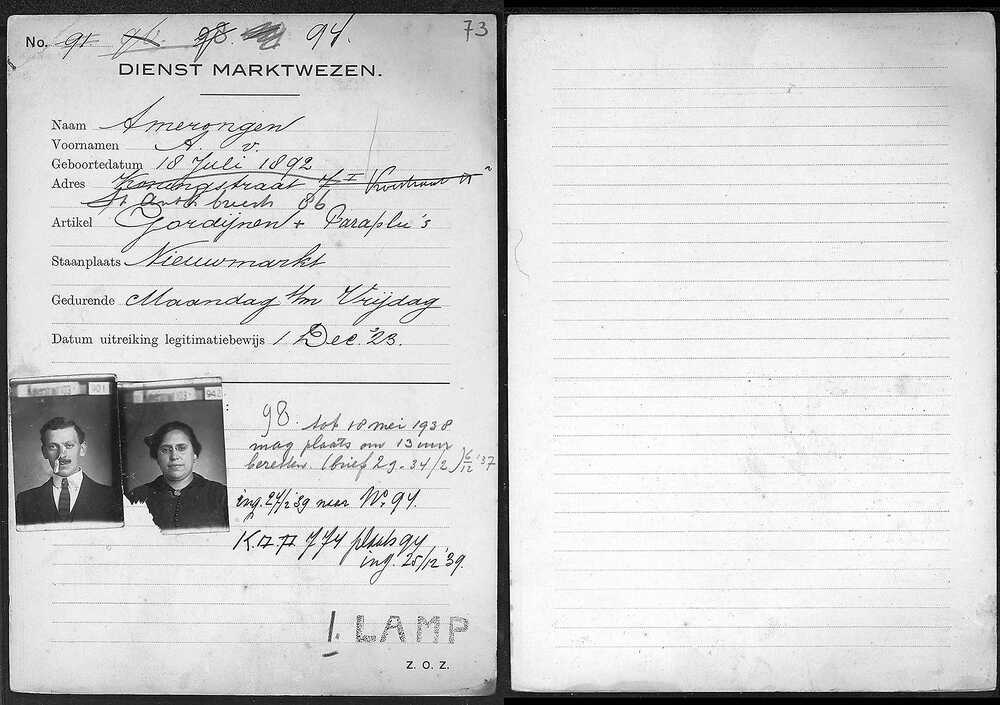 No. 91. 96. 98. 94. 73
DIENST MARKTWEZEN.
Naam Amerongen
Voornamen A. v.
Geboortedatum 18 Juli 1892
Adres Koningstraat 7 I
St Anth. breestr 86
Artikel Gordijnen + Paraplu's
Staanplaats Nieuwmarkt
Gedurende Maandag t/m Vrijdag
Datum uitreiking legitimatiebewijs 1 Dec. '23.
98. tot 18 mei 1938
mag plaats om 13 uur
bezetten. (brief 29-34/2) 6/12 '37
ing. 24/2 '39 naar No. 94.
K.A.A. 774 plaats 94
ing. 25/12 '39.
1. LAMP
Z. O. Z.